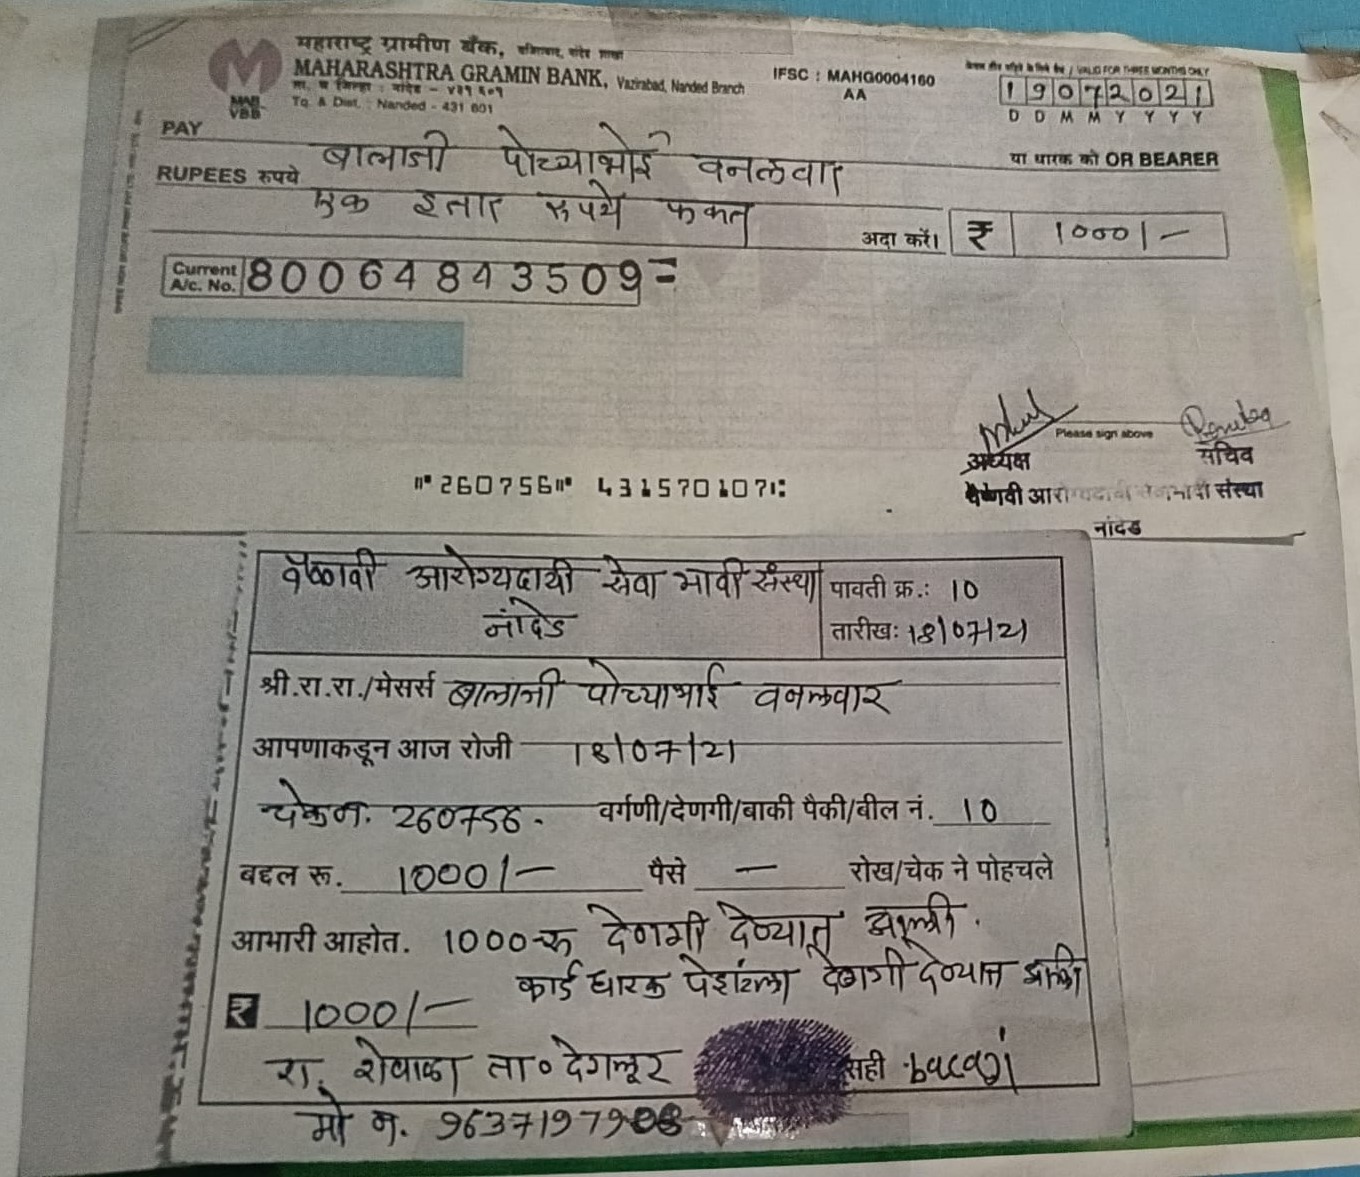 महाराष्ट्र ग्रामीण बैंक,
MAHARASHTRA GRAMIN BANK, Vazirabad, Nanded Branch
ता. व जिल्हा : नांदेड - ४३१ ६०१
Tq & Dist. : Nanded - 431 601
MAH
VBB
IFSC : MAHG0004160
AA
केवल तीन महिने के लिये वैध / VALID FOR THREE MONTHS ONLY
19072021
D D M M Y Y Y Y
PAY बालाजी पोच्याभोई वनलवार या धारक को OR BEARER
RUPEES रुपये एक हजार रुपये फक्त
अदा करें। ₹ 1000/-
Current A/c. No. 80064843509=
Please sign above
Renuka
अध्यक्ष सचिव
वैष्णवी आरोग्यदायी सेवाभावी संस्था
नांदेड
⑈260756⑈ 431570107⑆
वैष्णवी आरोग्यदायी सेवा भावी संस्था
नांदेड
पावती क्र.: 10
तारीख: 18/07/21
श्री.रा.रा./मेसर्स बालाजी पोच्याभोई वनलवार
आपणाकडून आज रोजी 18/07/21
चेक न. 260756. वर्गणी/देणगी/बाकी पैकी/बील नं. 10
बद्दल रू. 1000/- पैसे - रोख/चेक ने पोहचले
आभारी आहोत. 1000 रु देणगी देण्यात आली.
कार्ड धारक पेशंटला देणगी देण्यात आली
₹ 1000/-
रा. शेवाळा ता० देगलूर सही balaji
मो न. 9637197908